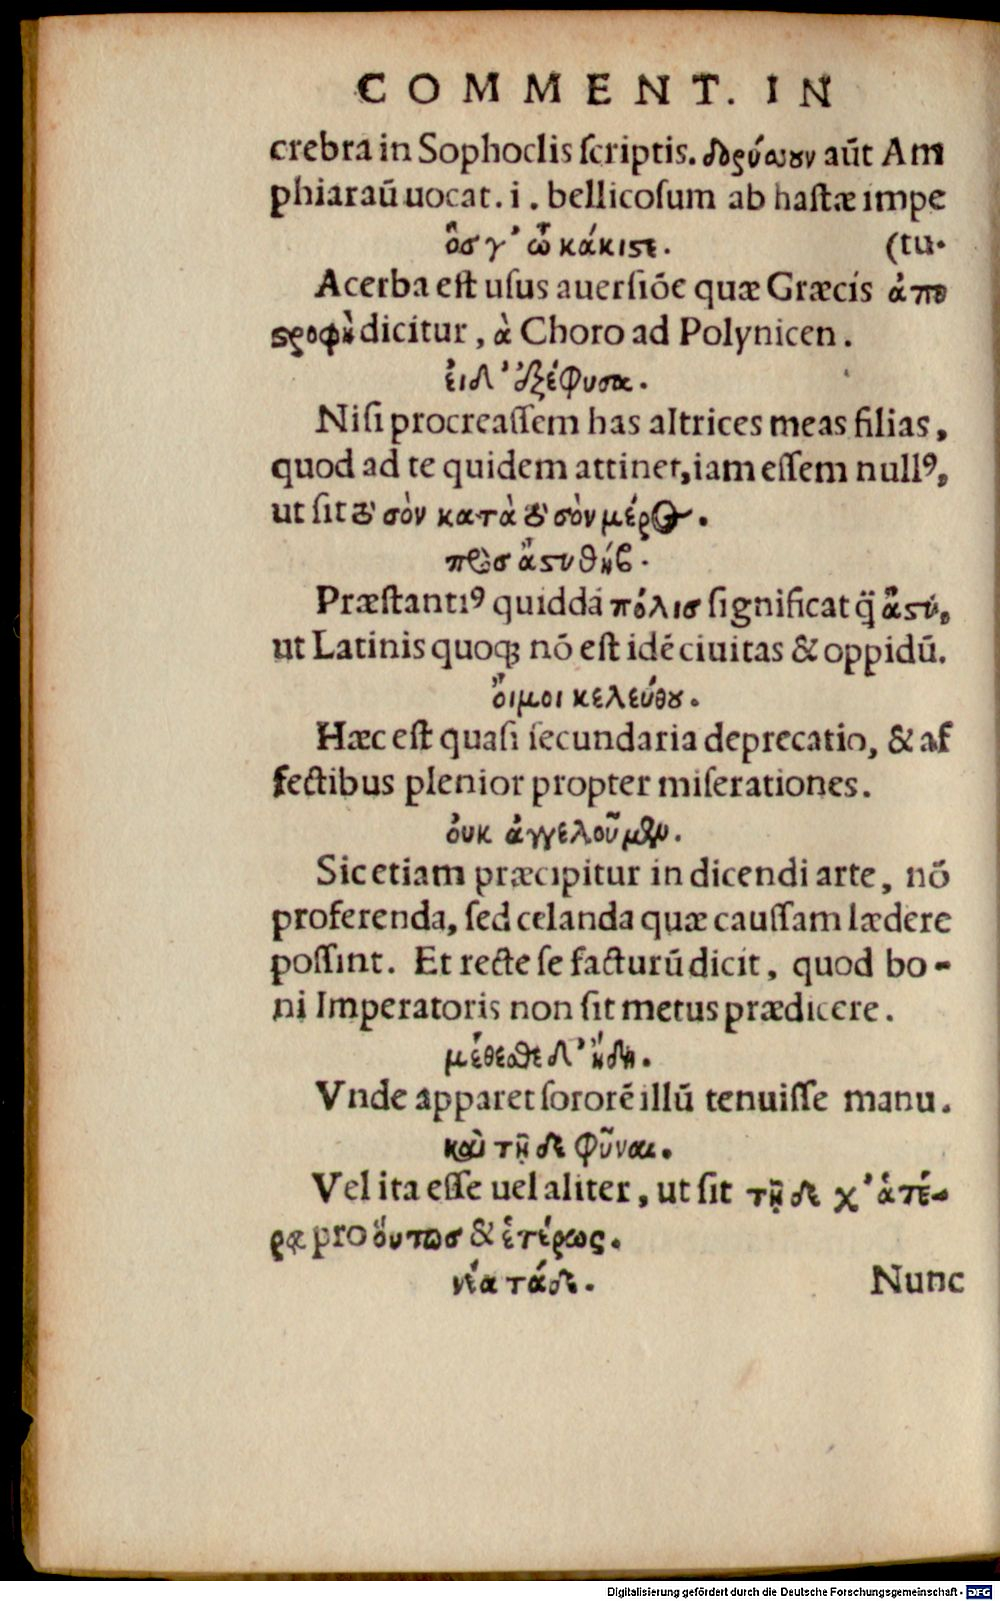 COMMENT. IN
crebra in Sophoclis ſcriptis. δορύσσουν aūt Am
phiaraū uocat. i. bellicoſum ab haſtæ impe
ὅσ γ' ὦ κάκιϛε. (tu.
Acerba eſt uſus auerſiōe quæ Græcis ἀπο
ϛροφὴ dicitur, à Choro ad Polynicen.
ἐι δ' ἐξέφυσα.
Niſi procreaſſem has altrices meas filias,
quod ad te quidem attinet, iam eſſem nullꝰ,
ut ſit τὸ σὸν κατὰ τὸ σὸν μέρος.
πρὸσ ἄϛυ θήβησ.
Præſtantiꝰ quiddā πόλισ ſignificat q̈ ἄϛυ,
ut Latinis quoqꝫ nō eſt idē ciuitas & oppidū.
ὄιμοι κελεύθου.
Hæc eſt quaſi ſecundaria deprecatio, & af
fectibus plenior propter miſerationes.
ὀυκ ἀγγελοῦμεν.
Sic etiam præcipitur in dicendi arte, nō
proferenda, ſed celanda quæ cauſſam lædere
poſſint. Et recte ſe facturū dicit, quod bo-
ni Imperatoris non ſit metus prædicere.
μέθεσθε δ' ἤδη.
Vnde apparet ſororē illū tenuiſſe manu.
καὶ τῇδε φῦναι.
Vel ita eſſe uel aliter, ut ſit τῇδε χ' ἀτέ-
ρᾳ pro ὅυτωσ & ἑτέρως.
νέα τάδε. Nunc
Digitalisierung gefördert durch die Deutsche Forschungsgemeinschaft - DFG